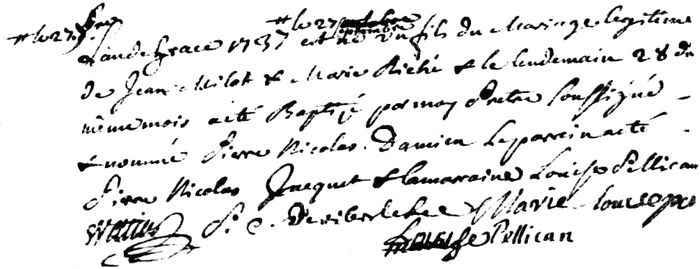 #le 27 #le 27 septembre
L'an de grace 1737 est né un fils du Mariage legitime
de Jean Milot & Marie Riché & le lendemain 28 du
même mois a été Baptisé par moy Pretre Soussigné
& nommé Pierre Nicolas Damien Le parrin a été
Pierre Nicolas Jacquet & la marraine Louise Pellican
P. C. Marie
Louise Pellican